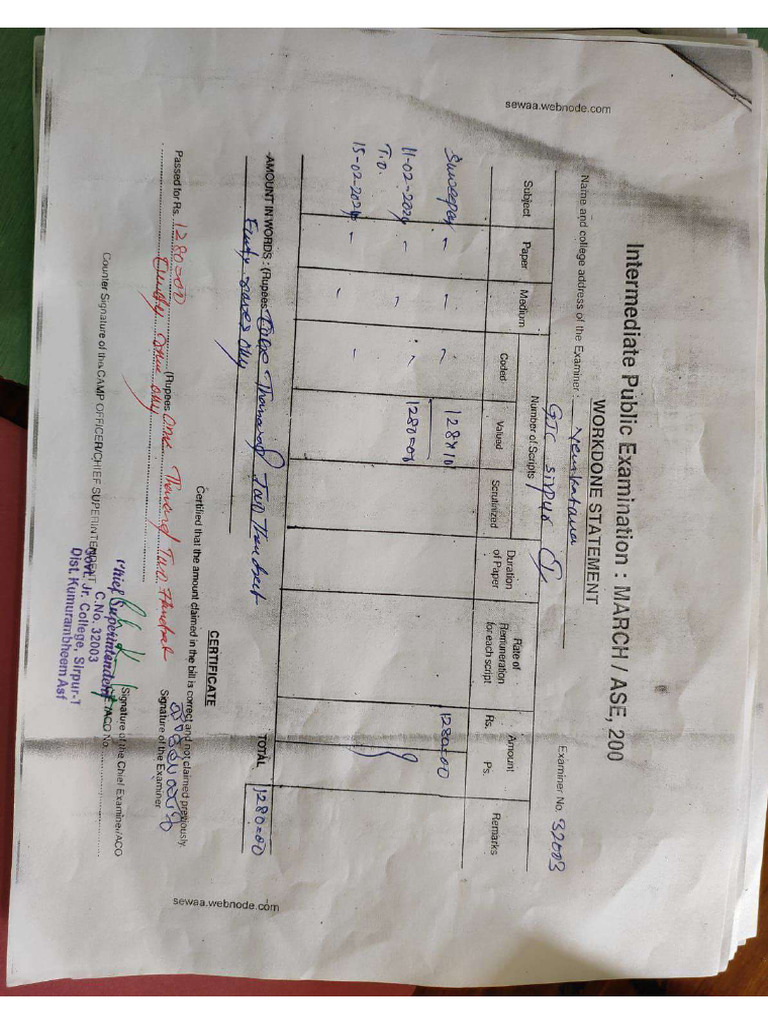 sewaa.webnode.com
Intermediate Public Examination : MARCH / ASE, 200
WORKDONE STATEMENT
Examiner No. 32003
Name and college address of the Examiner :
GJC Sirpur (T)
Subject Paper Medium Number of Scripts Duration of Paper Rate of Remuneration for each script Amount Remarks
Coded Valued Scrutinized Rs. Ps.
Sweeper - - - 128x10 1280=00
11-02-2024 - - - 1280=00
T.O.
15-02-2024 - - -
AMOUNT IN WORDS : (Rupees One Thousand Two Hundred TOTAL 1280=00
Eighty only
CERTIFICATE
Certified that the amount claimed in the bill is correct and not claimed previously.
Signature of the Examiner
Passed for Rs. 1280=00 (Rupees One Thousand Two Hundred
Eighty only
Signature of the Chief Examiner/ACO
/ACO No.
Counter Signature of the CAMP OFFICER/CHIEF SUPERINTENDENT
Chief Superintendent
C.No. 32003
Govt. Jr. College, Sirpur-T
Dist. Kumurambheem Asf
sewaa.webnode.com